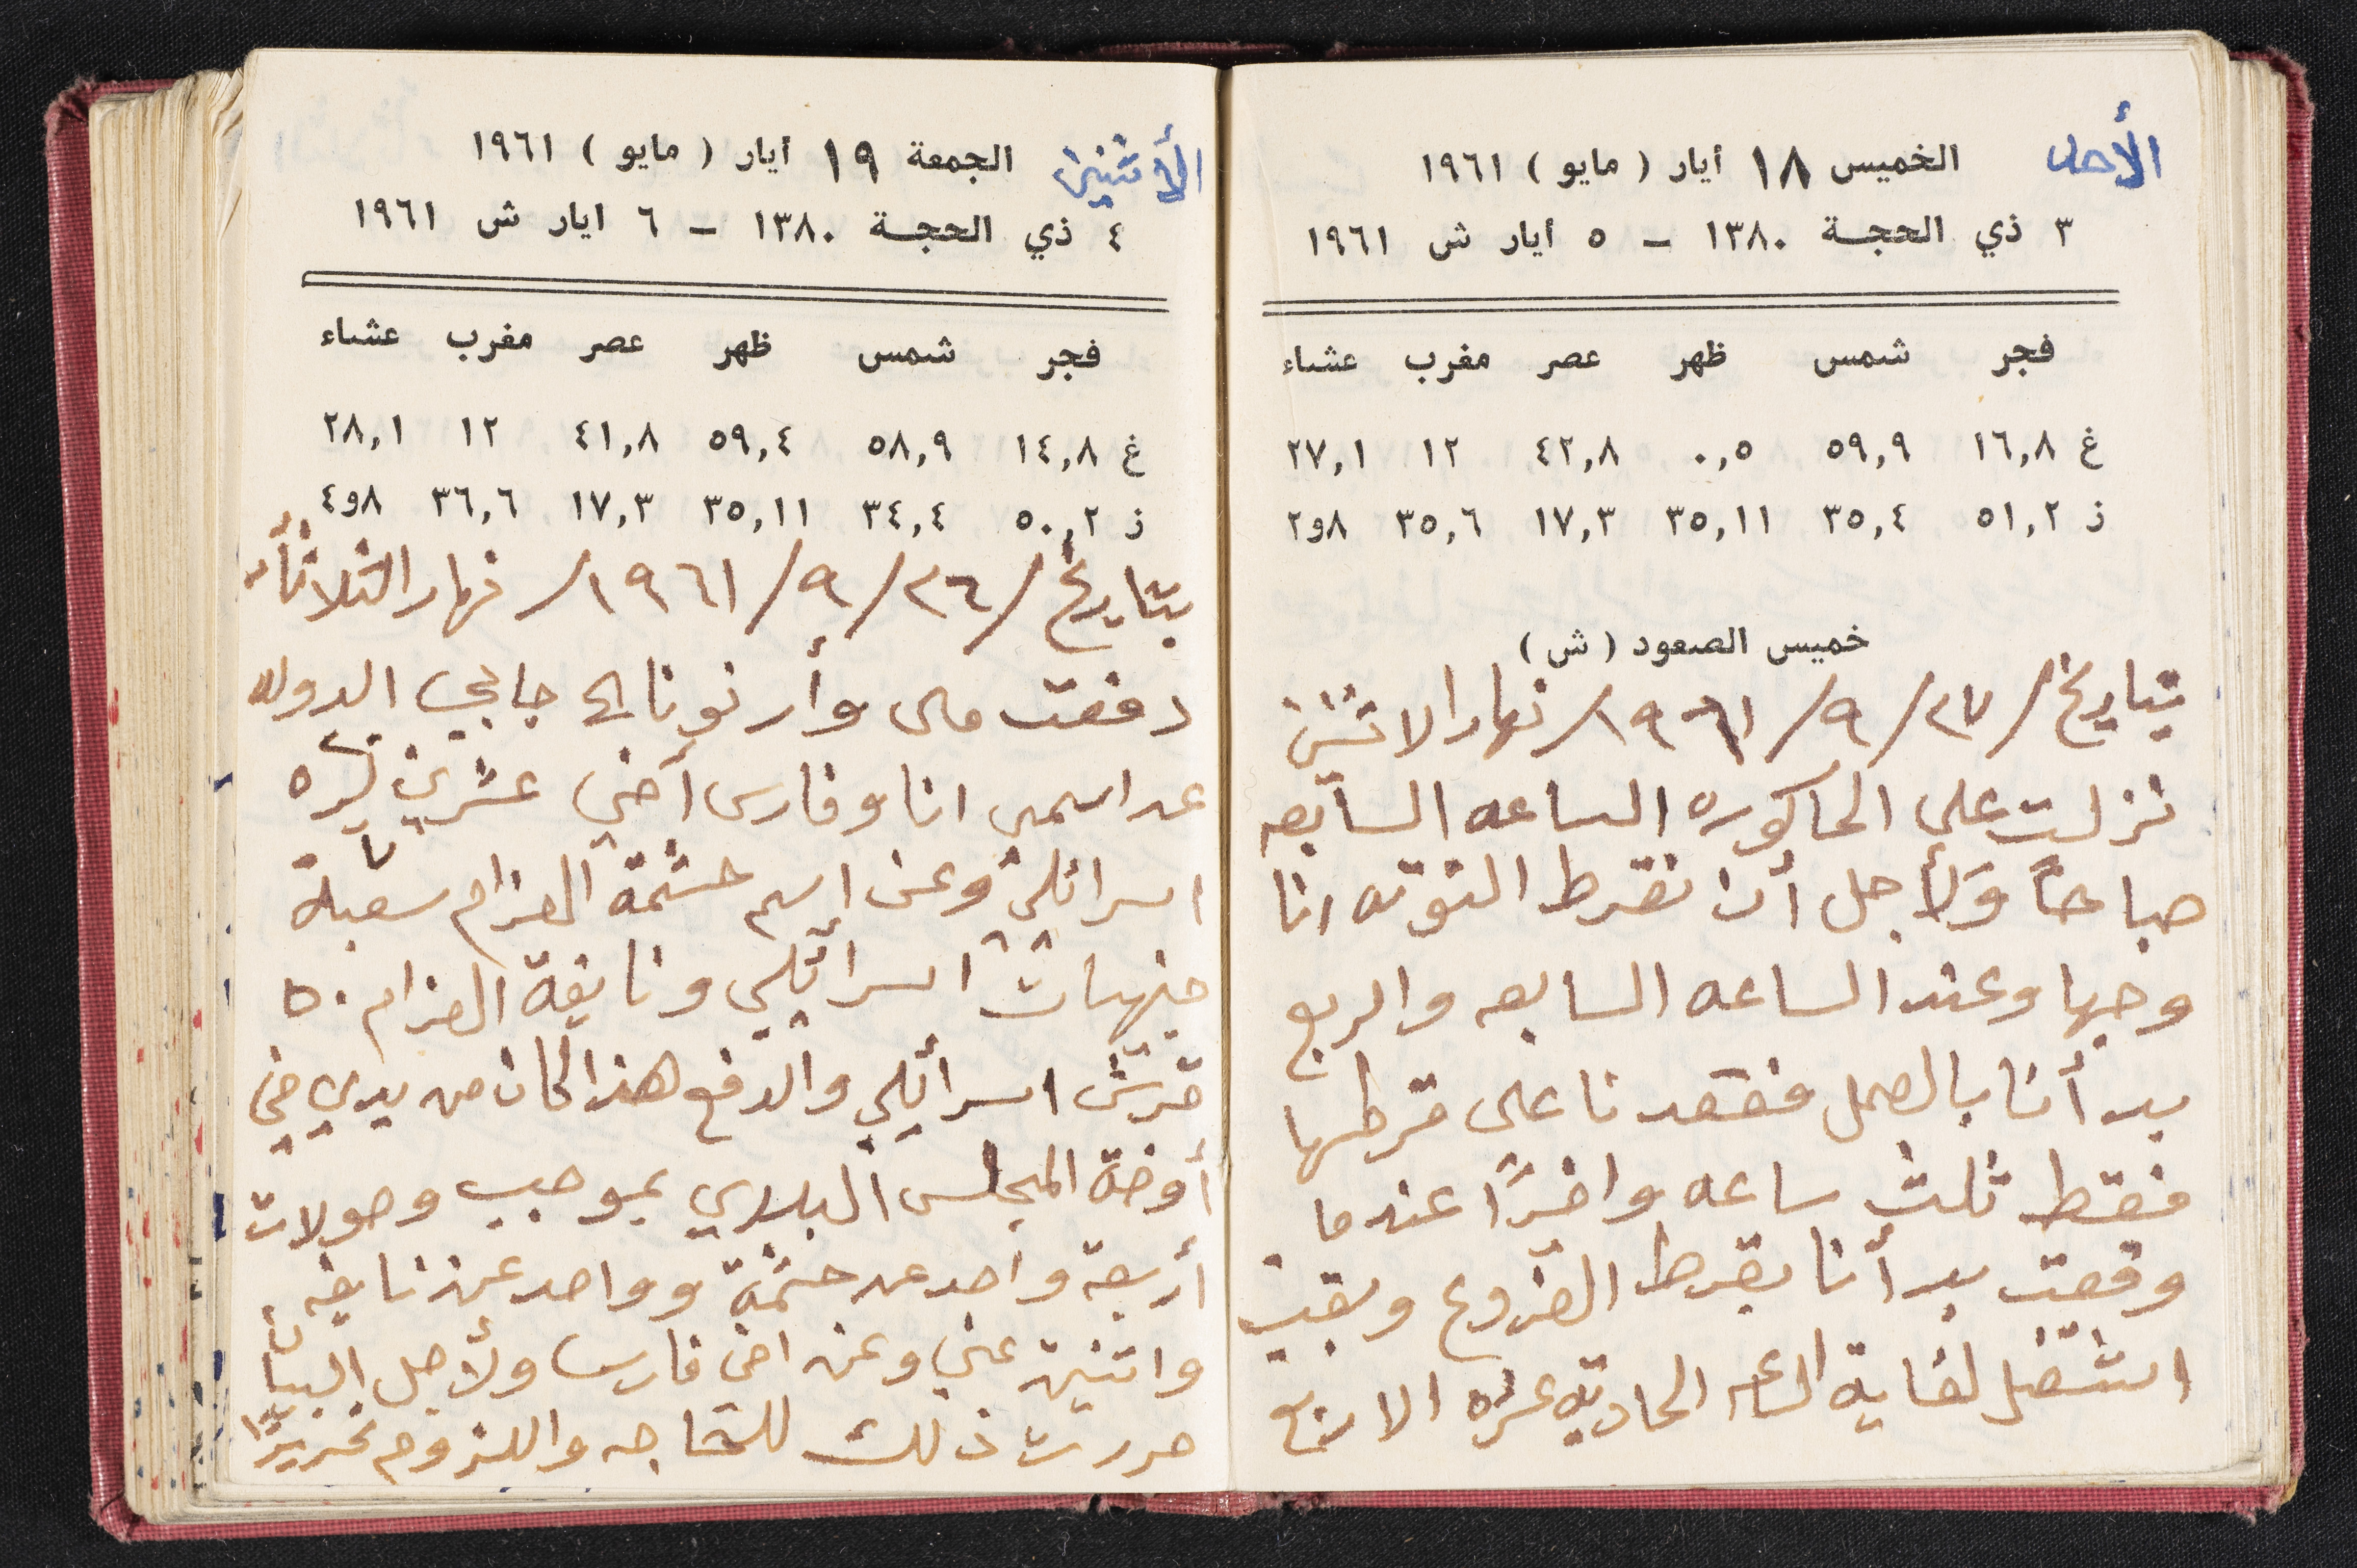 الأحد
الخميس ١٨ أيار ( مايو ) ١٩٦١
٣ ذي الحجة ١٣٨٠ – ٥ أيار ش ١٩٦١
فجر شمس ظهر عصر مغرب عشاء
غ ١٦,٨ ٥٩,٩ ٠,٥ ٤٢,٨ ١٢ ٢٧,١
ز ٥١,٢ ٣٥,٤ ٣٥,١١ ١٧,٣ ٣٥,٦ ٨و٢
خميس الصعود ( ش )
بتاريخ / ٢٧ / ٩ / ١٩٦١ / نهار الاثنين
نزلت على الحاكوره الساعه السابعه
صباحاً ولأجل أن نقرط التوته انا
وجيها وعند الساعه السابعه والربع
بدأنا بالعمل فقعدنا على قرطها
فقط ثلث ساعه واخيرًا عندما
وقعت بدأنا بقرط الفروع وبقيت
اشتغل لغاية الساعه الحاديه عشره الا ربع
الأثنين
الجمعة ١٩ أيار ( مايو ) ١٩٦١
٤ ذي الحجة ١٣٨٠ – ٦ ايار ش ١٩٦١
فجر شمس ظهر عصر مغرب عشاء
غ ١٤,٨ ٥٨,٩ ٥٩,٤ ٤١,٨ ١٢ ٢٨,١
ز ٥٠,٢ ٣٤,٤ ٣٥,١١ ١٧,٣ ٣٦,٦ ٨و٤
بتاريخ / ٢٦ / ٩ / ١٩٦١ / نهار الثلاثاء
دفعت مال وأرنونا الى جابي الدوله
عن اسمي انا وفارس أخي عشرين ليره
اسرائلي وعن اسم حشمة العزام سبعة
جنيهات اسرائيلي ونايفة العزام ٥٠
قرش اسرائيلي والدفع هذا كان من يدي في
أوضة المجلس البلدي بموجب وصولات
أربعة واحد عن حشمة وواحد عن نايفه
واتنين عني وعن اخي فارس ولأجل البيان
حررت ذلك للحاجه واللزوم تحريرًا